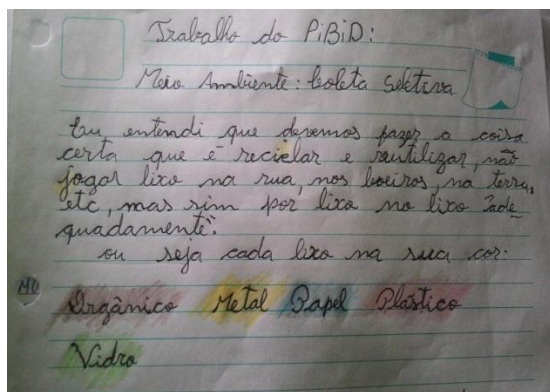 Trabalho do PiBiD:
Meio Ambiente: Coleta Seletiva
Eu entendi que devemos fazer a coisa
certa que é reciclar e reutilizar, não
jogar lixo na rua, nos boeiros, na terra,
etc, mas sim por lixo no lixo "ade
quadamente".
ou seja cada lixo na sua cor:
Orgânico Metal Papel Plástico
Vidro